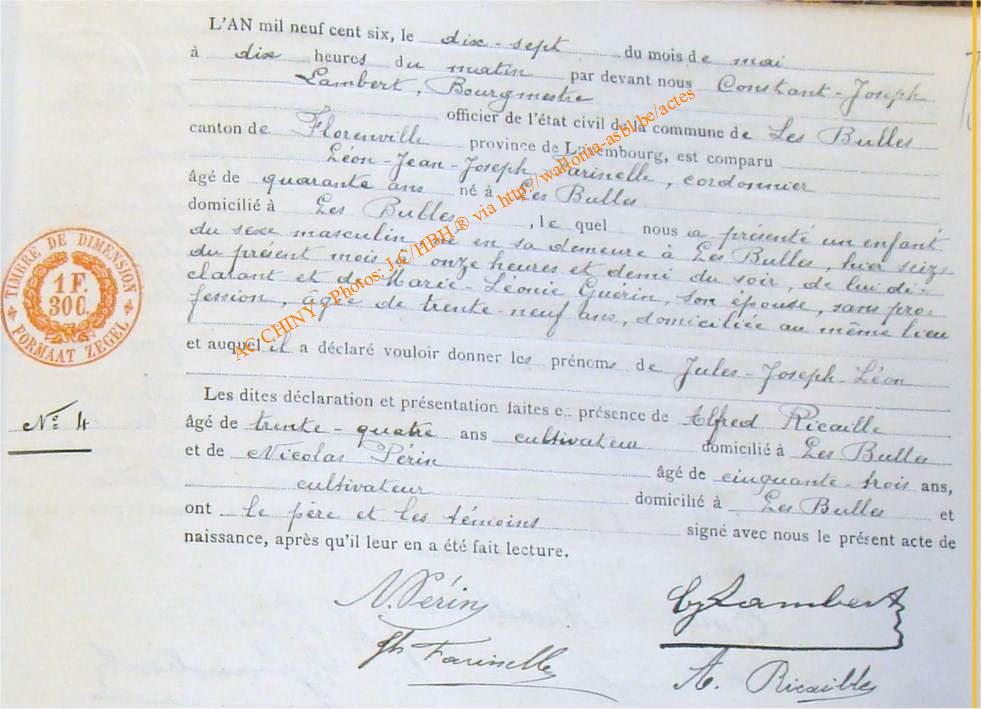 L'AN mil neuf cent six, le dix-sept du mois de mai
à dix heures du matin par devant nous Constant-Joseph
Lambert, Bourgmestre
officier de l'état civil de la commune de Les Bulles
canton de Florenville province de Luxembourg, est comparu
Léon-Jean-Joseph Farinelle, cordonnier
âgé de quarante ans né à Les Bulles
domicilié à Les Bulles, le quel nous a présenté un enfant
du sexe masculin, né en sa demeure à Les Bulles, hier seize
du présent mois à onze heures et demi du soir, de lui dé-
clarant et de Marie-Léonie Guérin, son épouse, sans pro-
fession, âgée de trente-neuf ans, domiciliée au même lieu
et auquel il a déclaré vouloir donner les prénoms de Jules-Joseph-Léon
Les dites déclaration et présentation faites en présence de Alfred Ricaille
âgé de trente-quatre ans cultivateur domicilié à Les Bulles
et de Nicolas Périn âgé de cinquante-trois ans,
cultivateur domicilié à Les Bulles et
ont le père et les témoins signé avec nous le présent acte de
naissance, après qu'il leur en a été fait lecture.
TIMBRE DE DIMENSION
1 F.
30 C.
FORMAAT ZEGEL
N° 4
N. Périn
Lambert
Farinelle
A. Ricaille
AC CHINY - Photos: J.C/HBH ® via http://wallonia-asbl.be/actes